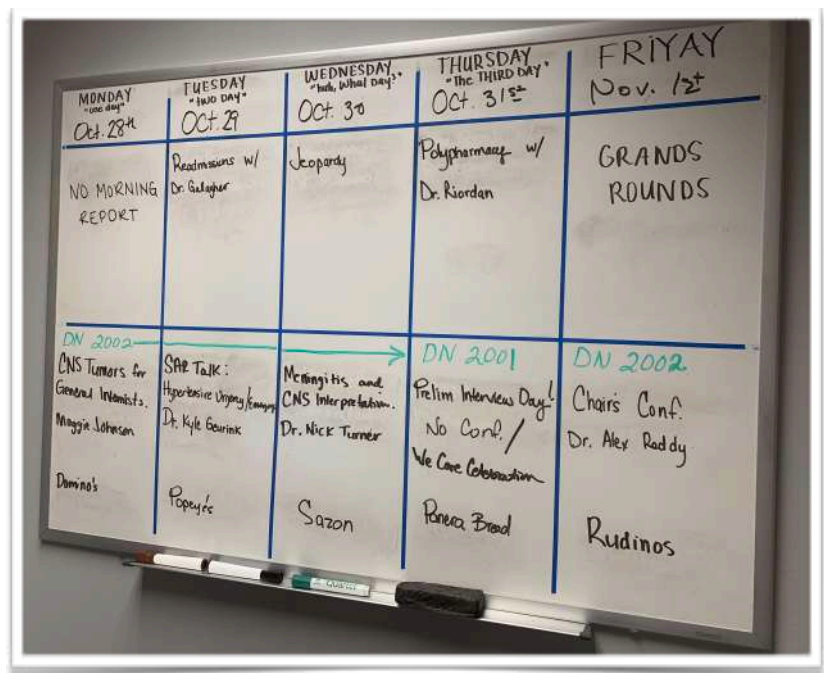 MONDAY
"one day"
Oct. 28th
TUESDAY
"TWO DAY"
OCT. 29
WEDNESDAY
"huh, What Day?"
OCT. 30
THURSDAY
"The THIRD DAY"
OCT. 31st
FRIYAY
Nov. 1st
NO MORNING
REPORT
Readmissions w/
Dr. Galagher
Jeopardy
Polypharmacy w/
Dr. Riordan
GRANDS
ROUNDS
DN 2002
CNS Tumors for
General Internists.
Maggie Johnson
Domino's
SAR Talk:
Hypertensive Urgency/Emergency
Dr. Kyle Geurink
Popeye's
Meningitis and
CNS Interpretation.
Dr. Nick Turner
Sazon
DN 2001
Prelim Interview Day!
No Conf. /
We Care Celebration
Panera Bread
DN 2002
Chair's Conf.
Dr. Alex Raddy
Rudinos